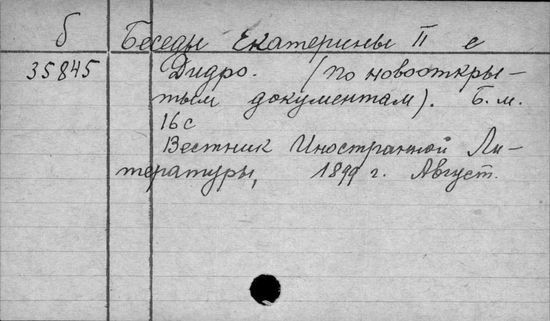 б Беседы Екатерины II с
35845 Дидро. (по новооткры-
тым документам). Б. м.
16 с
Вестник Иностранной Ли-
тературы, 1899 г. Август.